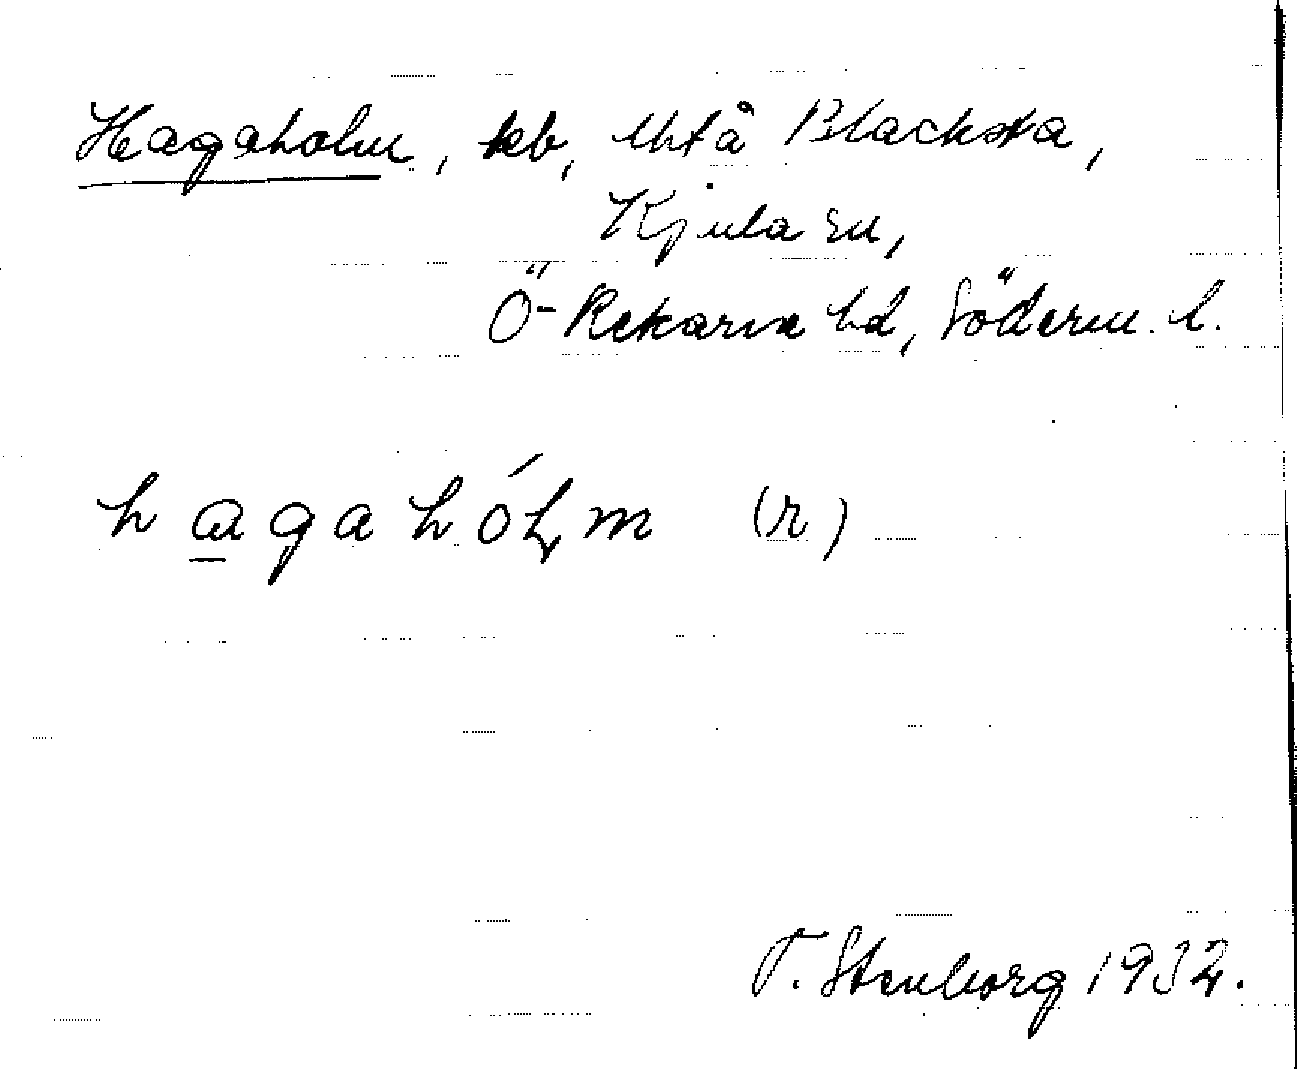 Hagaholm, leb, utfå Blacksta,
Kjula sn,
Ö-Rekarne hd, Söderm. l.
hagahólm (r)
T. Stenborg 1932.